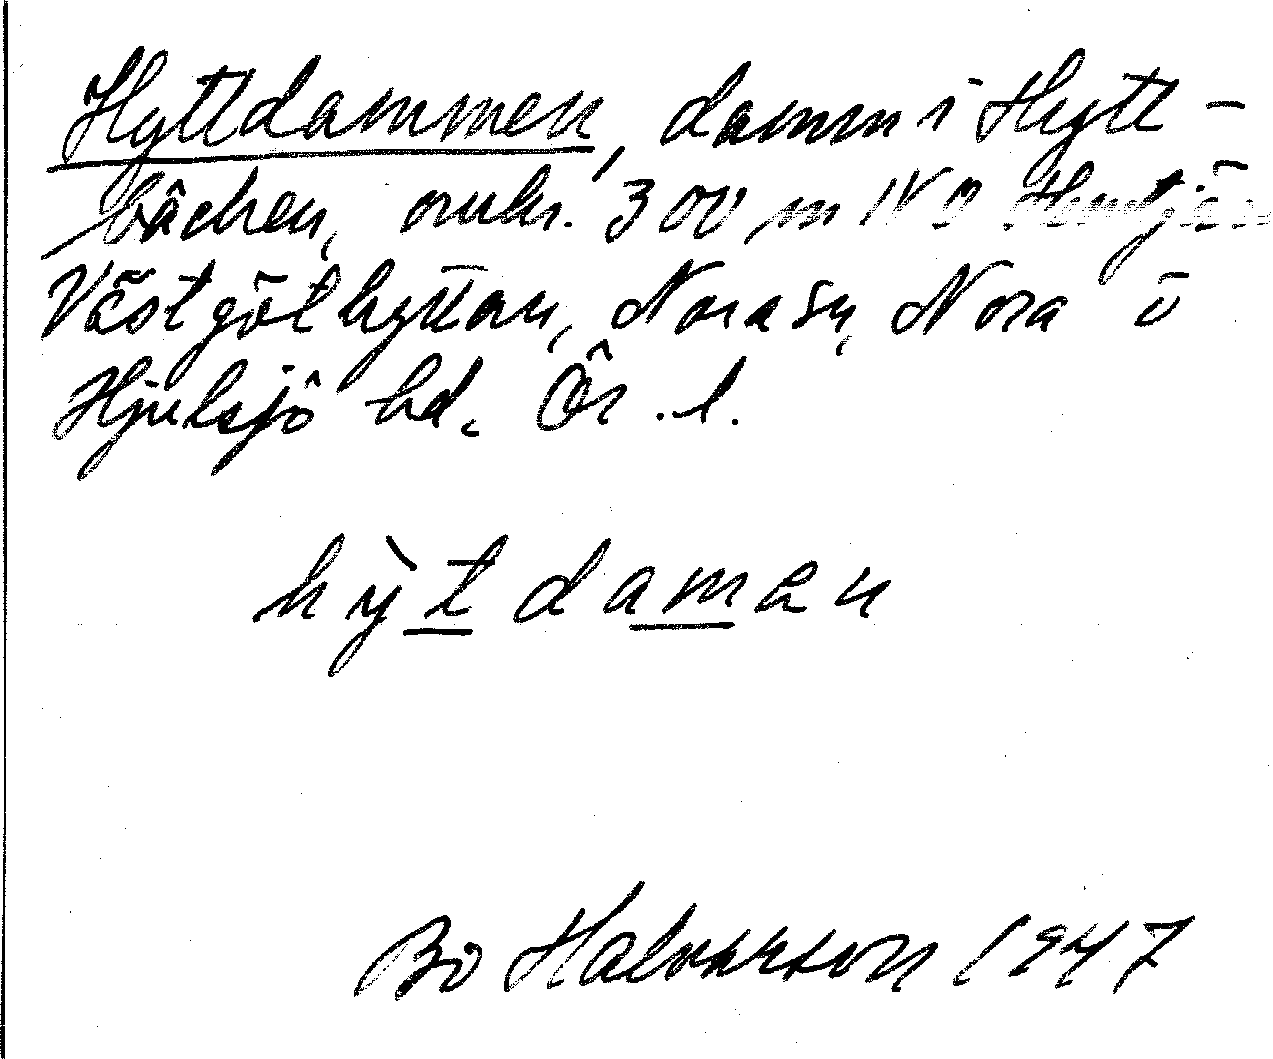 Hyttdammen, damm i Hytt-
bäcken, omkr. 300 m NO
Västgöthyttan, Nora sn, Nora o
Hjulsjö bd. Ör. l.
hy̆t daman
Bo Halvarson 1947